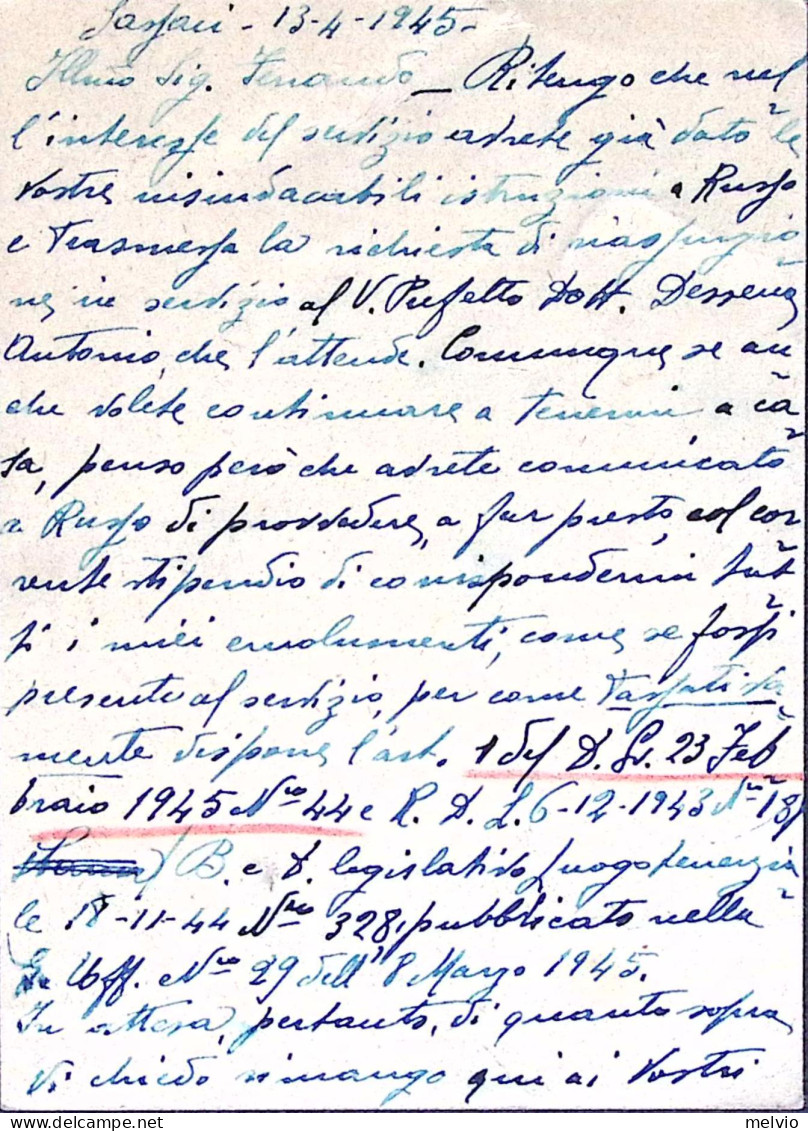 Sassari - 13-4-1945-
Illmo Sig. Ferrando - Ritengo che nel
l'interesse del servizio avrete già dato le
Vostre insindacabili istruzioni a Russo
e trasmessa la richiesta di riassunzio
ne in servizio al V. Prefetto Dott. Dessena
Antonio, che l'attende. Comunque, se an
che volete continuare a tenermi a ca
sa, penso però che avrete comunicato
a Russo di provvedere, a far presto, col cor
rente stipendio di corrispondermi tut
ti i miei emolumenti, come se fossi
presente al servizio, per come
mente dispone l'art. 1 del D. Lt. 23 Feb
braio 1945 Nro 44 e R. D. L. 6-12-1943 Nro 18/
B. e D. legislativo luogotenenzia
le 18-11-44 Nro 328, pubblicato nella
G. Uff. Nro 29 dell' 8 Marzo 1945.
In attesa, pertanto, di quanto sopra
Vi chiedo rimango qui ai Vostri
melvio